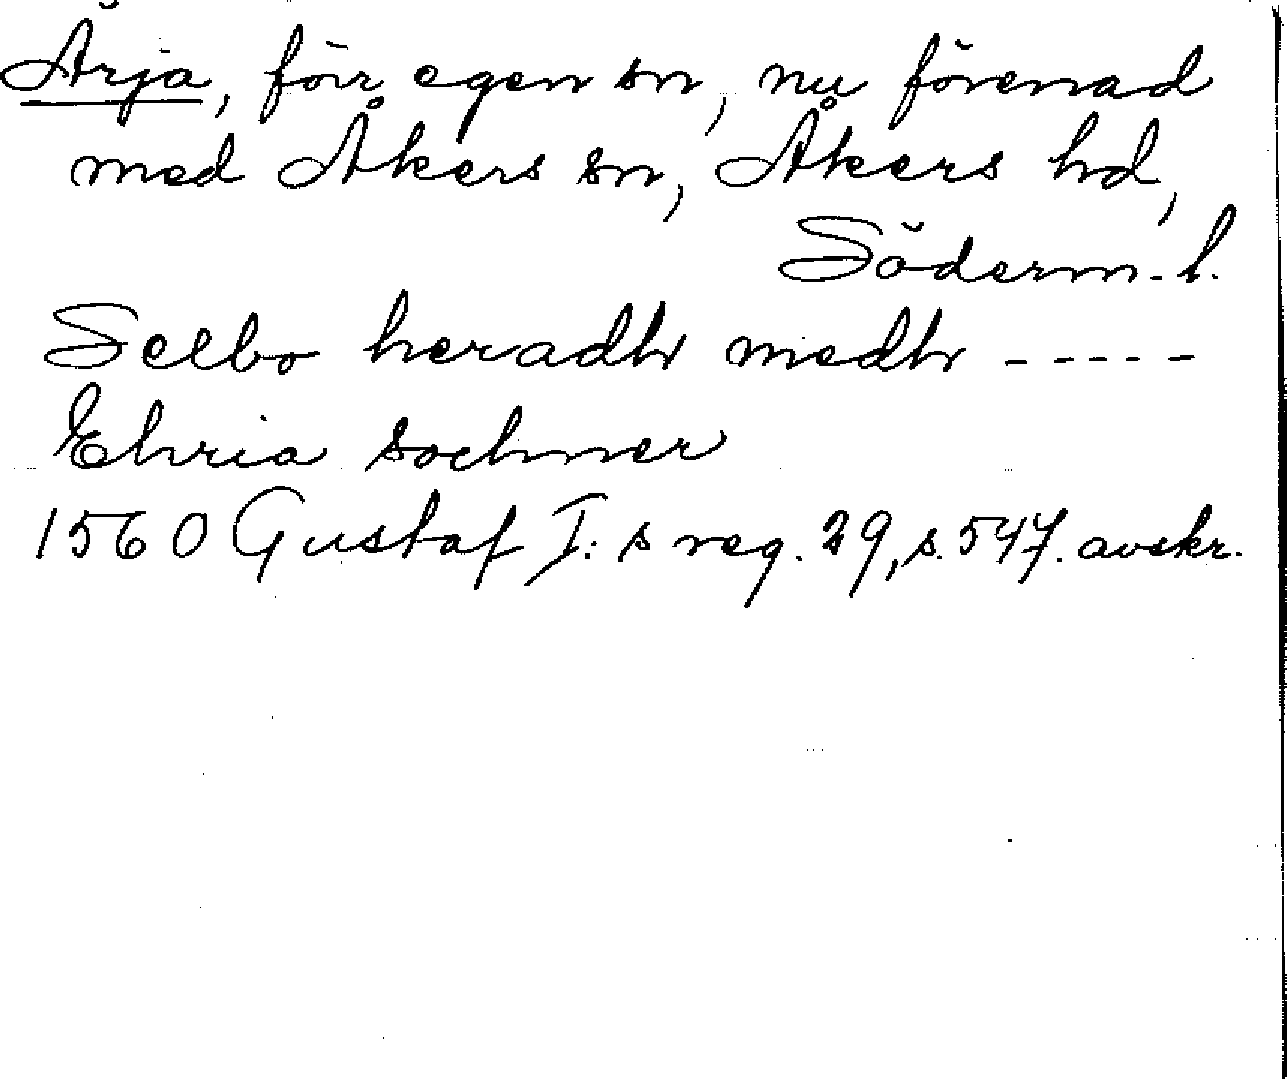 Ärja, förr egen sn, nu förenad
med Åkers sn, Åkers hd,
Söderm. l.
Selbo heradh medh - - - - -
Ehria sochner
1560 Gustaf I:s reg. 29, s. 547. avskr.